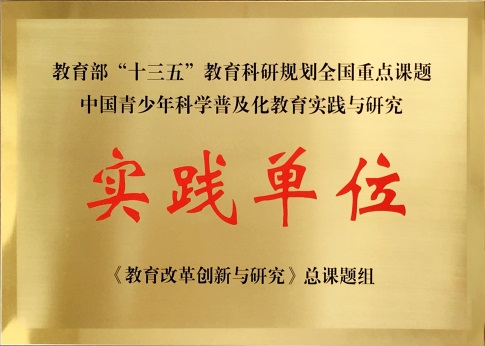 教育部“十三五”教育科研规划全国重点课题
中国青少年科学普及化教育实践与研究
实践单位
《教育改革创新与研究》总课题组